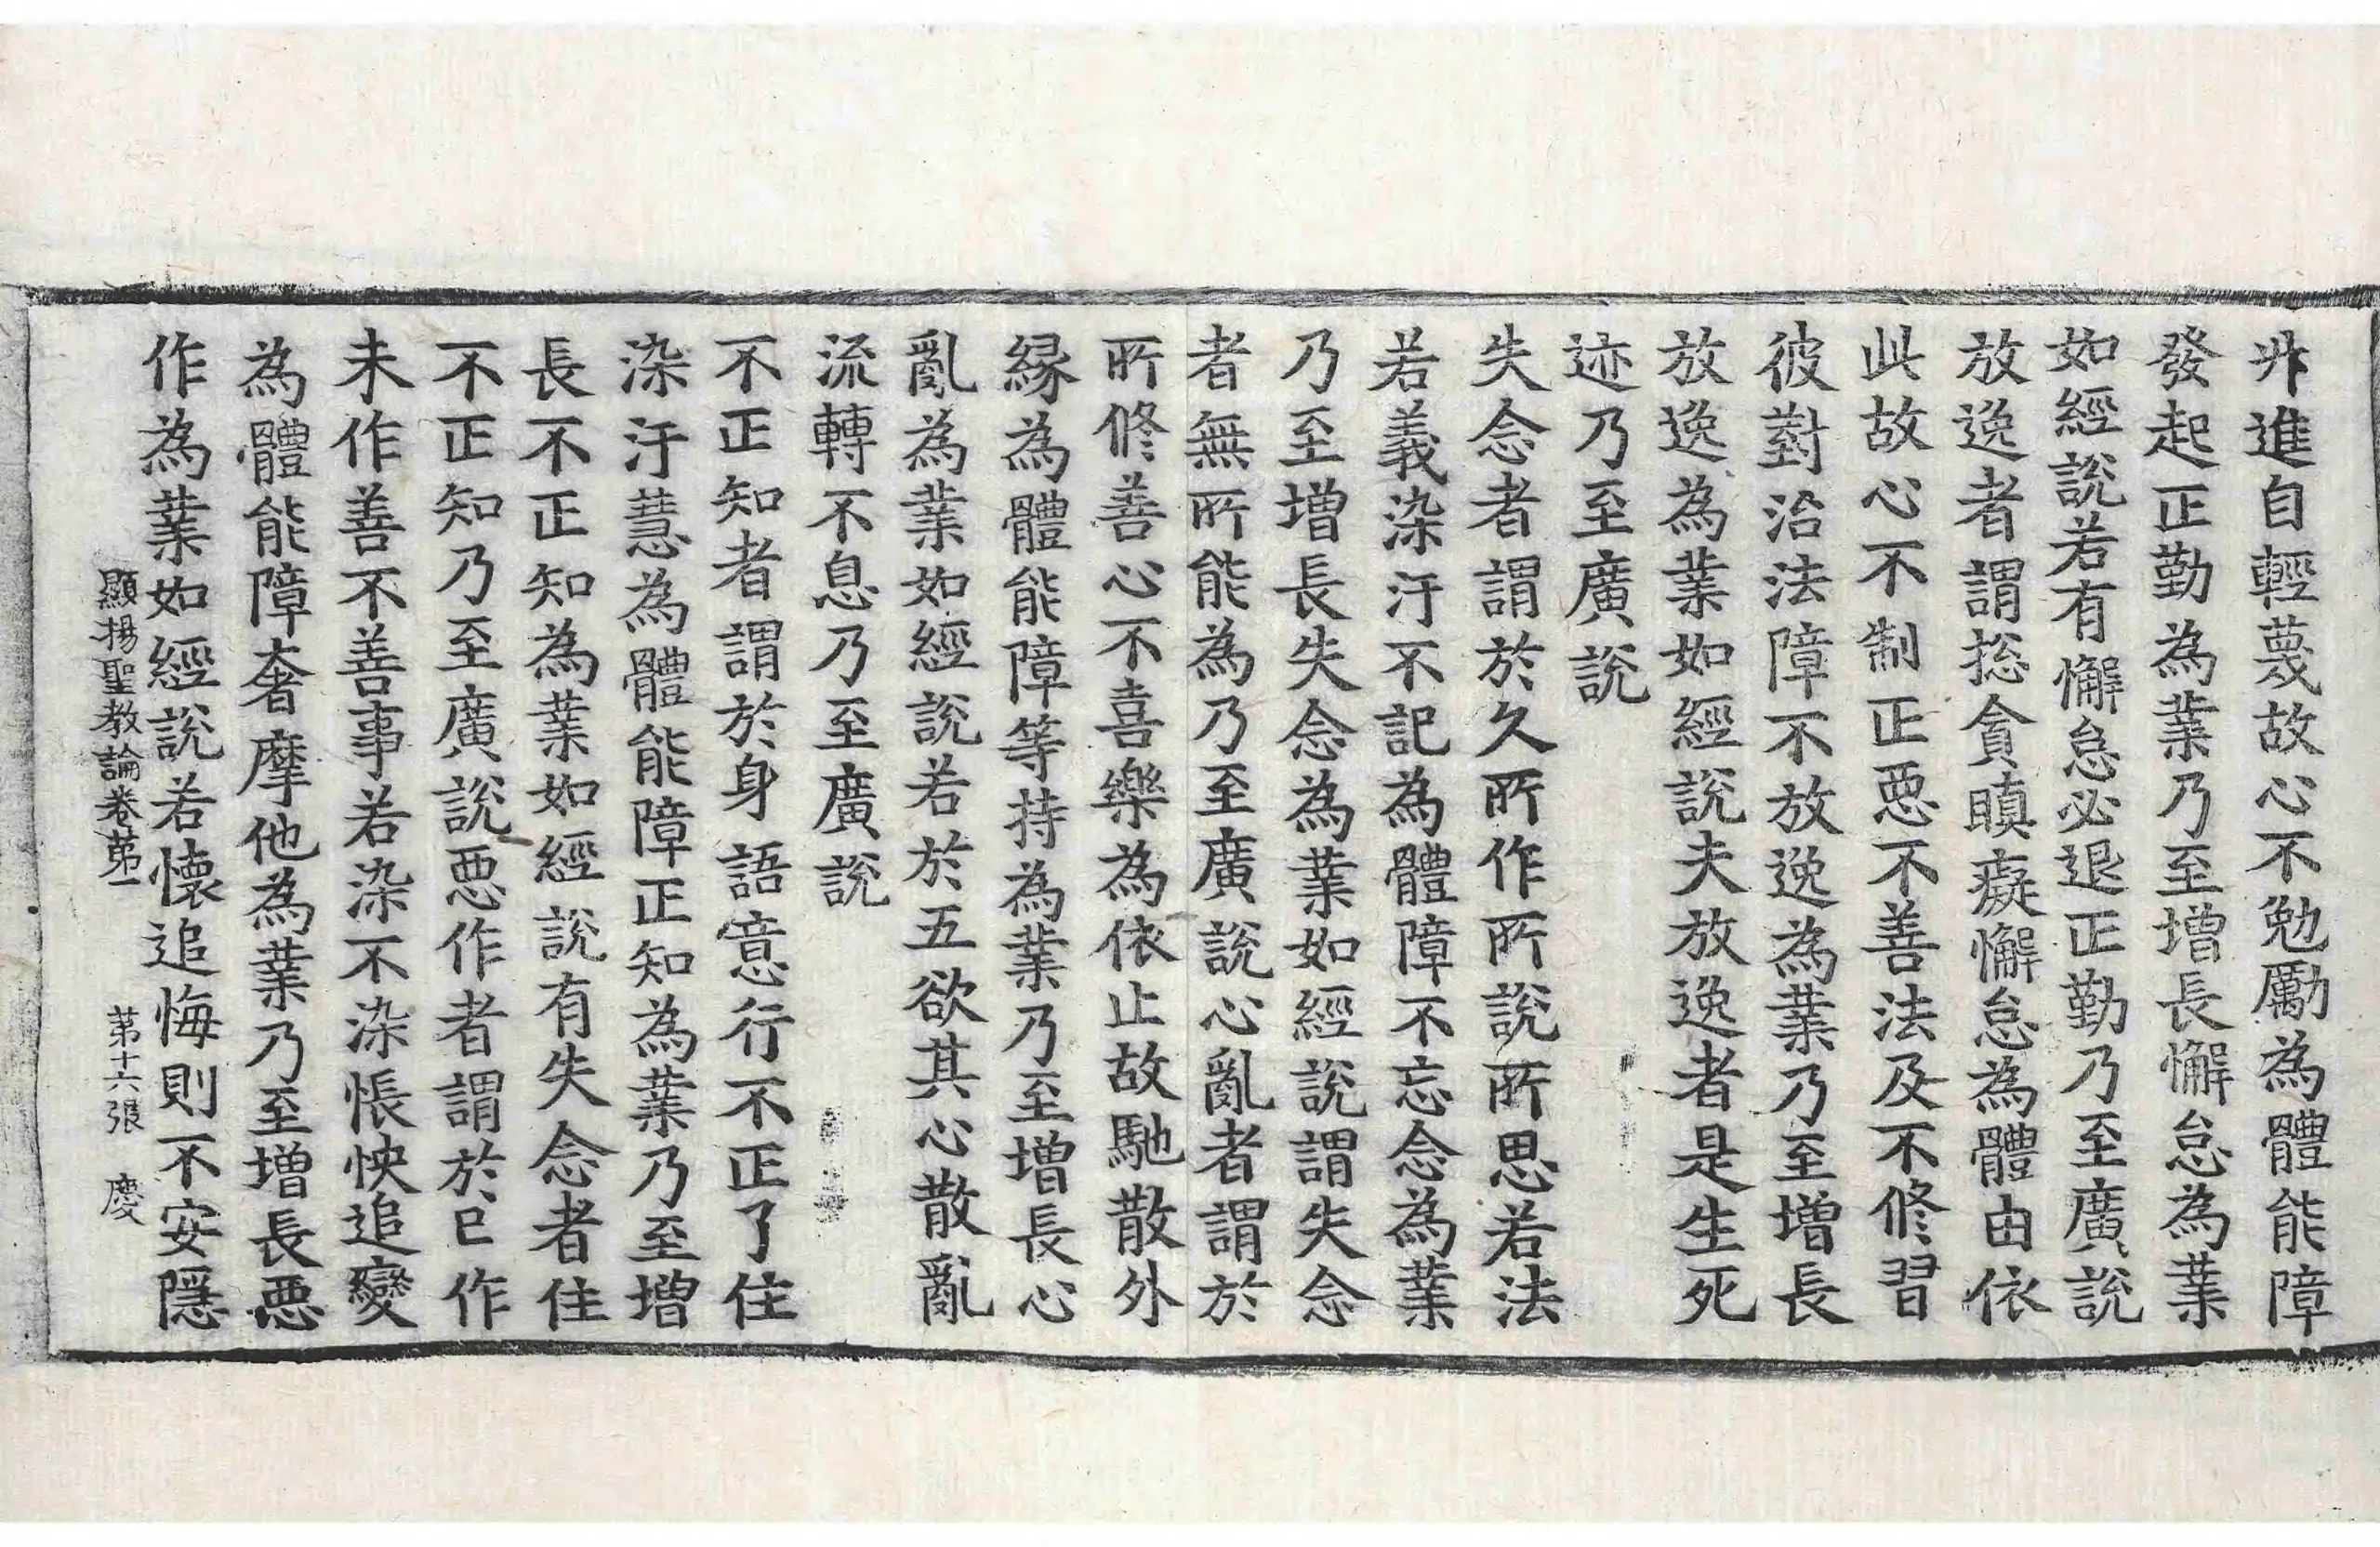 非進自輕蔑故心不勉勵為體能障
發起正勤為業乃至增長懈怠為業
如經說若有懈怠必退正勤乃至廣說
放逸者謂捴貪瞋癡懈怠為體由依
此故心不制正惡不善法及不修習
彼對治法障不放逸為業乃至增長
放逸為業如經說夫放逸者是生死
迹乃至廣說
失念者謂於久所作所說所思若法
若義染汙不記為體障不忘念為業
乃至增長失念為業如經說謂失念
者無所能為乃至廣說心亂者謂於
所修善心不喜樂為依止故馳散外
緣為體能障等持為業乃至增長心
亂為業如經說若於五欲其心散亂
流轉不息乃至廣說
不正知者謂於身語意行不正了住
染汙慧為體能障正知為業乃至增
長不正知為業如經說有失念者住
不正知乃至廣說惡作者謂於已作
未作善不善事若染不染悵怏追變
為體能障奢摩他為業乃至增長惡
作為業如經說若懷追悔則不安隱
顯揚聖教論卷第一 第十六張 慶